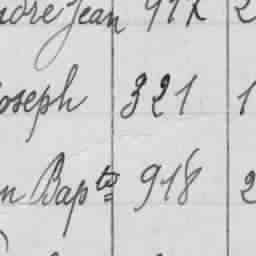 Jean 91
oseph 321 1
n Bapte 918 2